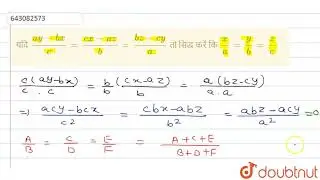 643082573
यदि (ay − bx)/c = (cx − az)/b = (bz − cy)/a तो सिद्ध करें कि x/a = y/b = z/c
c(ay-bx)/c.c = b/b (cx-az)/b = a(bz-cy)/a.a
⇒ acy-bcx/c² = cbx-abz/b² = abz-acy/a² = 0
A/B = C/D = E/F = A+C+E/B+D+F
doubtnut